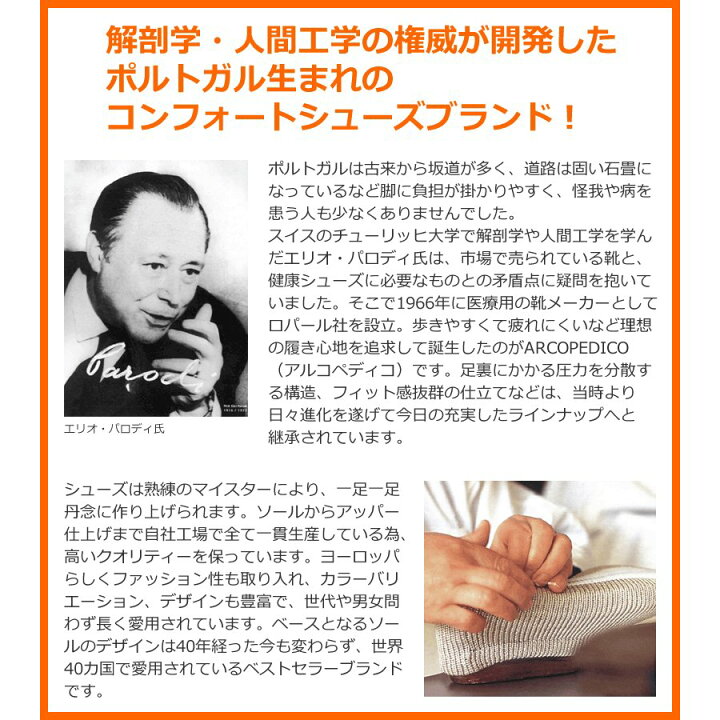 解剖学・人間工学の権威が開発した
ポルトガル生まれの
コンフォートシューズブランド！
ポルトガルは古来から坂道が多く、道路は固い石畳に
なっているなど脚に負担が掛かりやすく、怪我や病を
患う人も少なくありませんでした。
スイスのチューリッヒ大学で解剖学や人間工学を学ん
だエリオ・パロディ氏は、市場で売られている靴と、
健康シューズに必要なものとの矛盾点に疑問を抱いて
いました。そこで1966年に医療用の靴メーカーとして
ロパール社を設立。歩きやすくて疲れにくいなど理想
の履き心地を追求して誕生したのがARCOPEDICO
（アルコペディコ）です。足裏にかかる圧力を分散す
る構造、フィット感抜群の仕立てなどは、当時より
日々進化を遂げて今日の充実したラインナップへと
継承されています。
Parodi
エリオ・パロディ氏
シューズは熟練のマイスターにより、一足一足
丹念に作り上げられます。ソールからアッパー
仕上げまで自社工場で全て一貫生産している為、
高いクオリティーを保っています。ヨーロッパ
らしくファッション性も取り入れ、カラーバリ
エーション、デザインも豊富で、世代や男女問
わず長く愛用されています。ベースとなるソー
ルのデザインは40年経った今も変わらず、世界
40カ国で愛用されているベストセラーブランド
です。